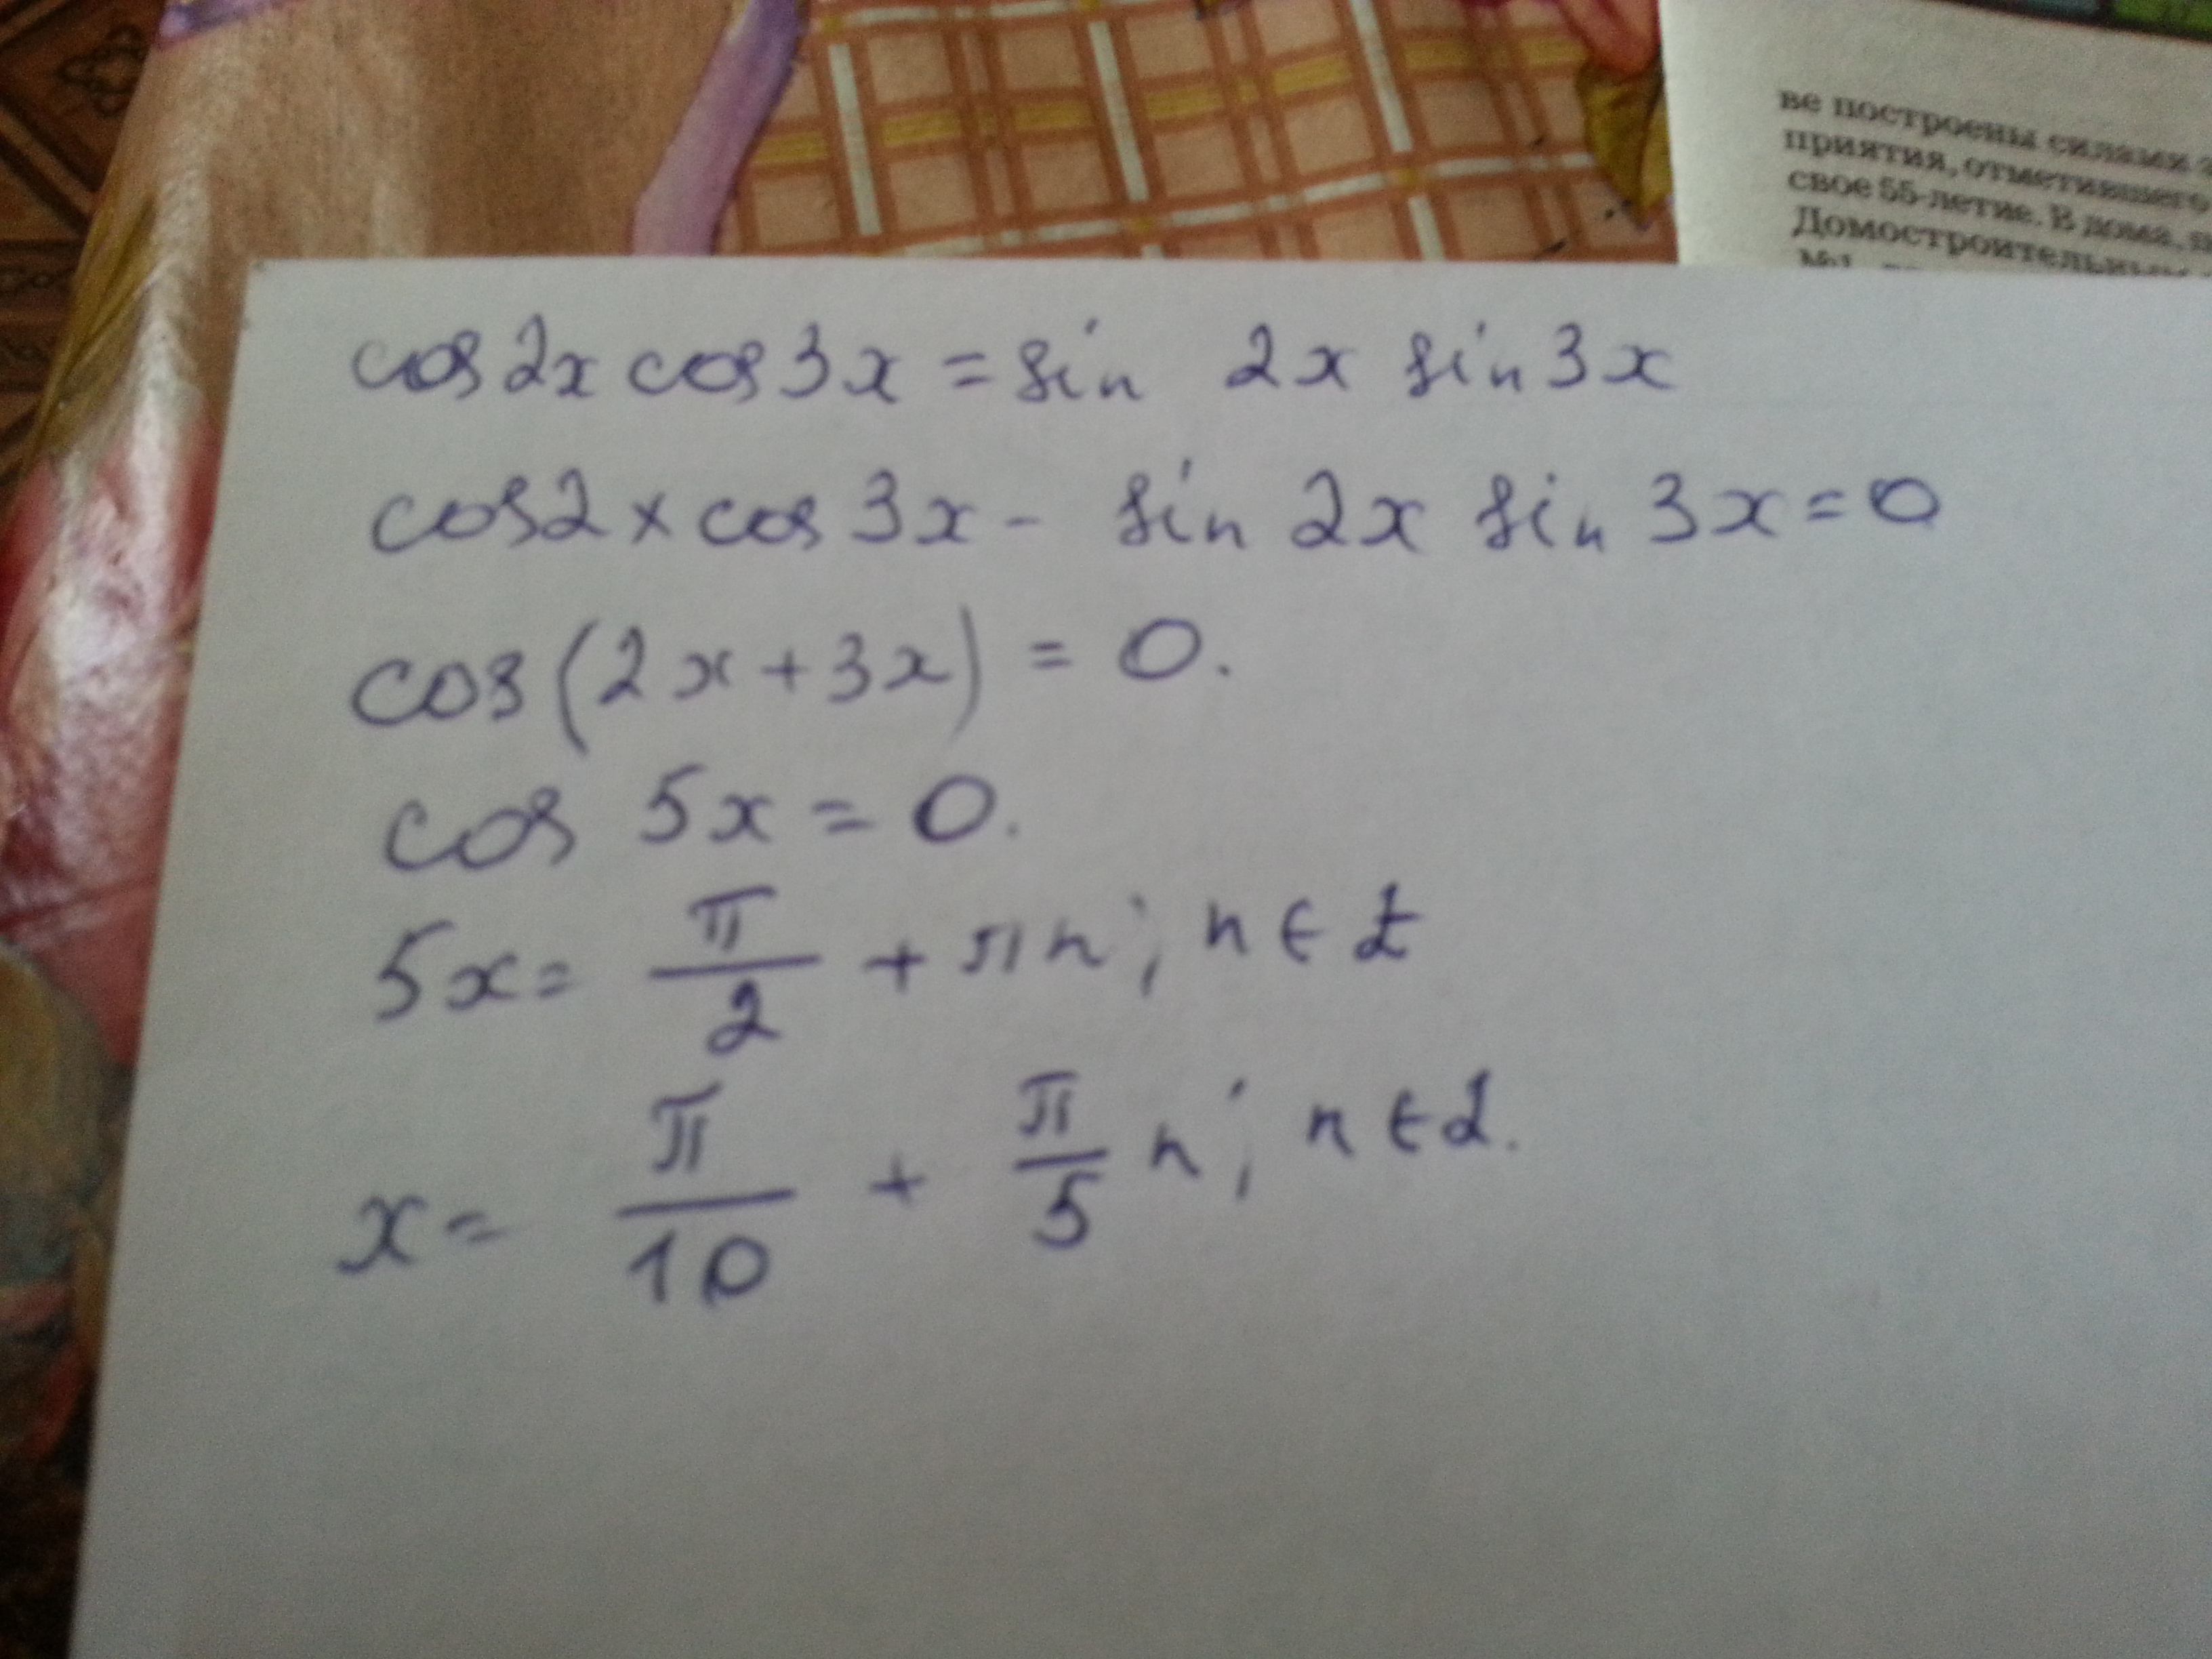 ве построены силами
приятия, отметившего
свое 55-летие. В дома,
Домостроительным
№1
cos2x cos3x = sin 2x sin3x
cos2x cos 3x - sin 2x sin 3x = 0
cos(2x+3x) = 0.
cos 5x = 0.
5x = π/2 + πn; n ∈ Z
x = π/10 + π/5 n; n ∈ Z.